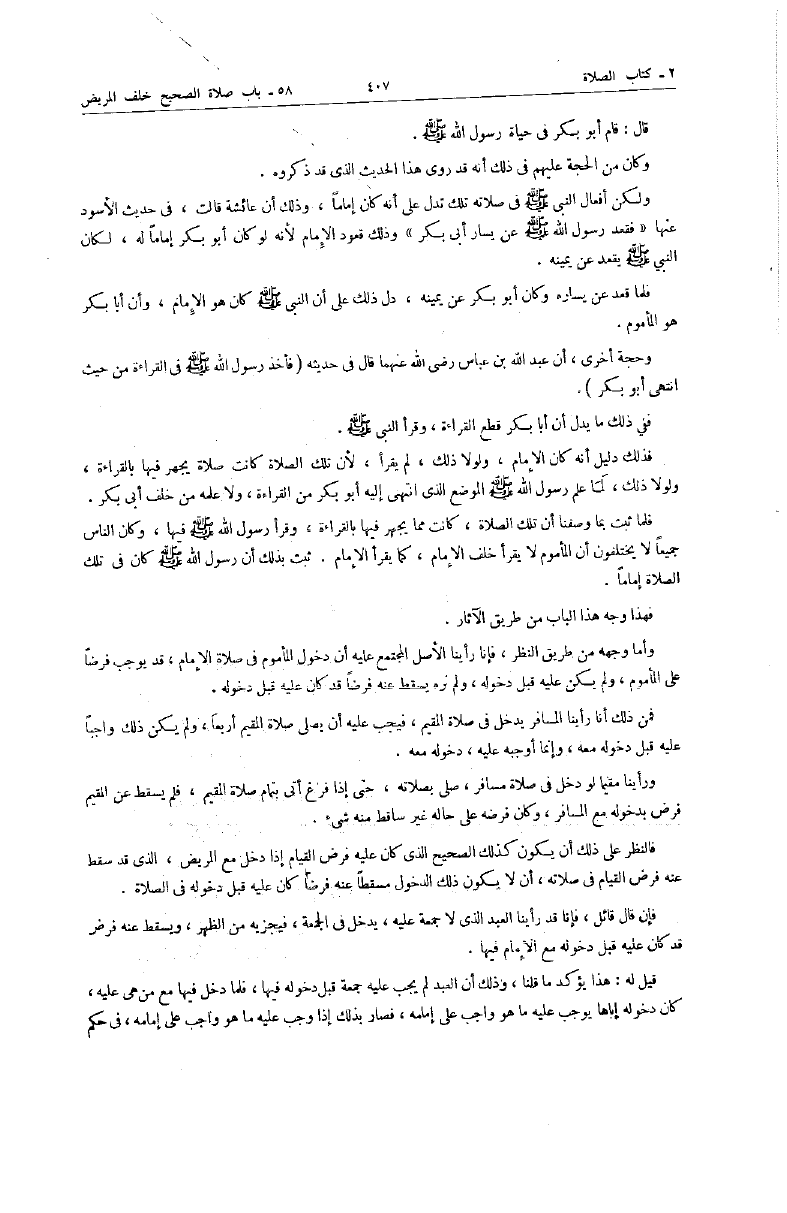 ٢ - كتاب الصلاة ٤٠٧ ٥٨ - باب صلاة الصحيح خلف المريض
قال : قام أبو بكر فى حياة رسول الله ﷺ .
وكان من الحجة عليهم فى ذلك أنه قد روى هذا الحديث الذى قد ذكروه .
ولكن أفعال النبي ﷺ فى صلاته تلك تدل على أنه كان إماماً ، وذلك أن عائشة قالت ، فى حديث الأسود
عنها « فقعد رسول الله ﷺ عن يسار أبى بكر » وذلك قعود الإمام لأنه لو كان أبو بكر إماماً له ، لكان
النبي ﷺ يقعد عن يمينه .
فلما قعد عن يساره وكان أبو بكر عن يمينه ، دل ذلك على أن النبي ﷺ كان هو الإمام ، وأن أبا بكر
هو المأموم .
وحجة أخرى ، أن عبد الله بن عباس رضى الله عنهما قال فى حديثه ( فأخذ رسول الله ﷺ فى القراءة من حيث
انتهى أبو بكر ) .
ففي ذلك ما يدل أن أبا بكر قطع القراءة ، وقرأ النبي ﷺ .
فذلك دليل أنه كان الإمام ، ولولا ذلك ، لم يقرأ ، لأن تلك الصلاة كانت صلاة يجهر فيها بالقراءة ،
ولولا ذلك ، لَمَا علم رسول الله ﷺ الموضع الذى انتهى إليه أبو بكر من القراءة ، ولا علمه من خلف أبى بكر .
فلما ثبت بما وصفنا أن تلك الصلاة ، كانت مما يجهر فيها بالقراءة ، وقرأ رسول الله ﷺ فيها ، وكان الناس
جميعاً لا يختلفون أن المأموم لا يقرأ خلف الإمام ، كما يقرأ الإمام . ثبت بذلك أن رسول الله ﷺ كان فى تلك
الصلاة إماماً .
فهذا وجه هذا الباب من طريق الآثار .
وأما وجهه من طريق النظر ، فإنا رأينا الأصل المجتمع عليه أن دخول المأموم فى صلاة الإمام ، قد يوجب فرضاً
على المأموم ، ولم يكن عليه قبل دخوله ، ولم نره يسقط عنه فرضاً قد كان عليه قبل دخوله .
فمن ذلك أنا رأينا المسافر يدخل فى صلاة المقيم ، فيجب عليه أن يصلى صلاة المقيم أربعاً ، ولم يكن ذلك واجباً
عليه قبل دخوله معه ، وإنما أوجبه عليه ، دخوله معه .
ورأينا مقيما لو دخل فى صلاة مسافر ، صلى بصلاته ، حتى إذا فرغ أتى بتمام صلاة المقيم ، فلم يسقط عن المقيم
فرض بدخوله مع المسافر ، وكان فرضه على حاله غير ساقط منه شىء .
فالنظر على ذلك أن يكون كذلك الصحيح الذى كان عليه فرض القيام إذا دخل مع المريض ، الذى قد سقط
عنه فرض القيام فى صلاته ، أن لا يكون ذلك الدخول مسقطاً عنه فرضاً كان عليه قبل دخوله فى الصلاة .
فإن قال قائل ، فإنا قد رأينا العبد الذى لا جمعة عليه ، يدخل فى الجمعة ، فيجزيه من الظهر ، ويسقط عنه فرض
قد كان عليه قبل دخوله مع الإمام فيها .
قيل له : هذا يؤكد ما قلنا ، وذلك أن العبد لم يجب عليه جمعة قبل دخوله فيها ، فلما دخل فيها مع من هى عليه ،
كان دخوله إياها يوجب عليه ما هو واجب على إمامه ، فصار بذلك إذا وجب عليه ما هو واجب على إمامه ، فى حكم